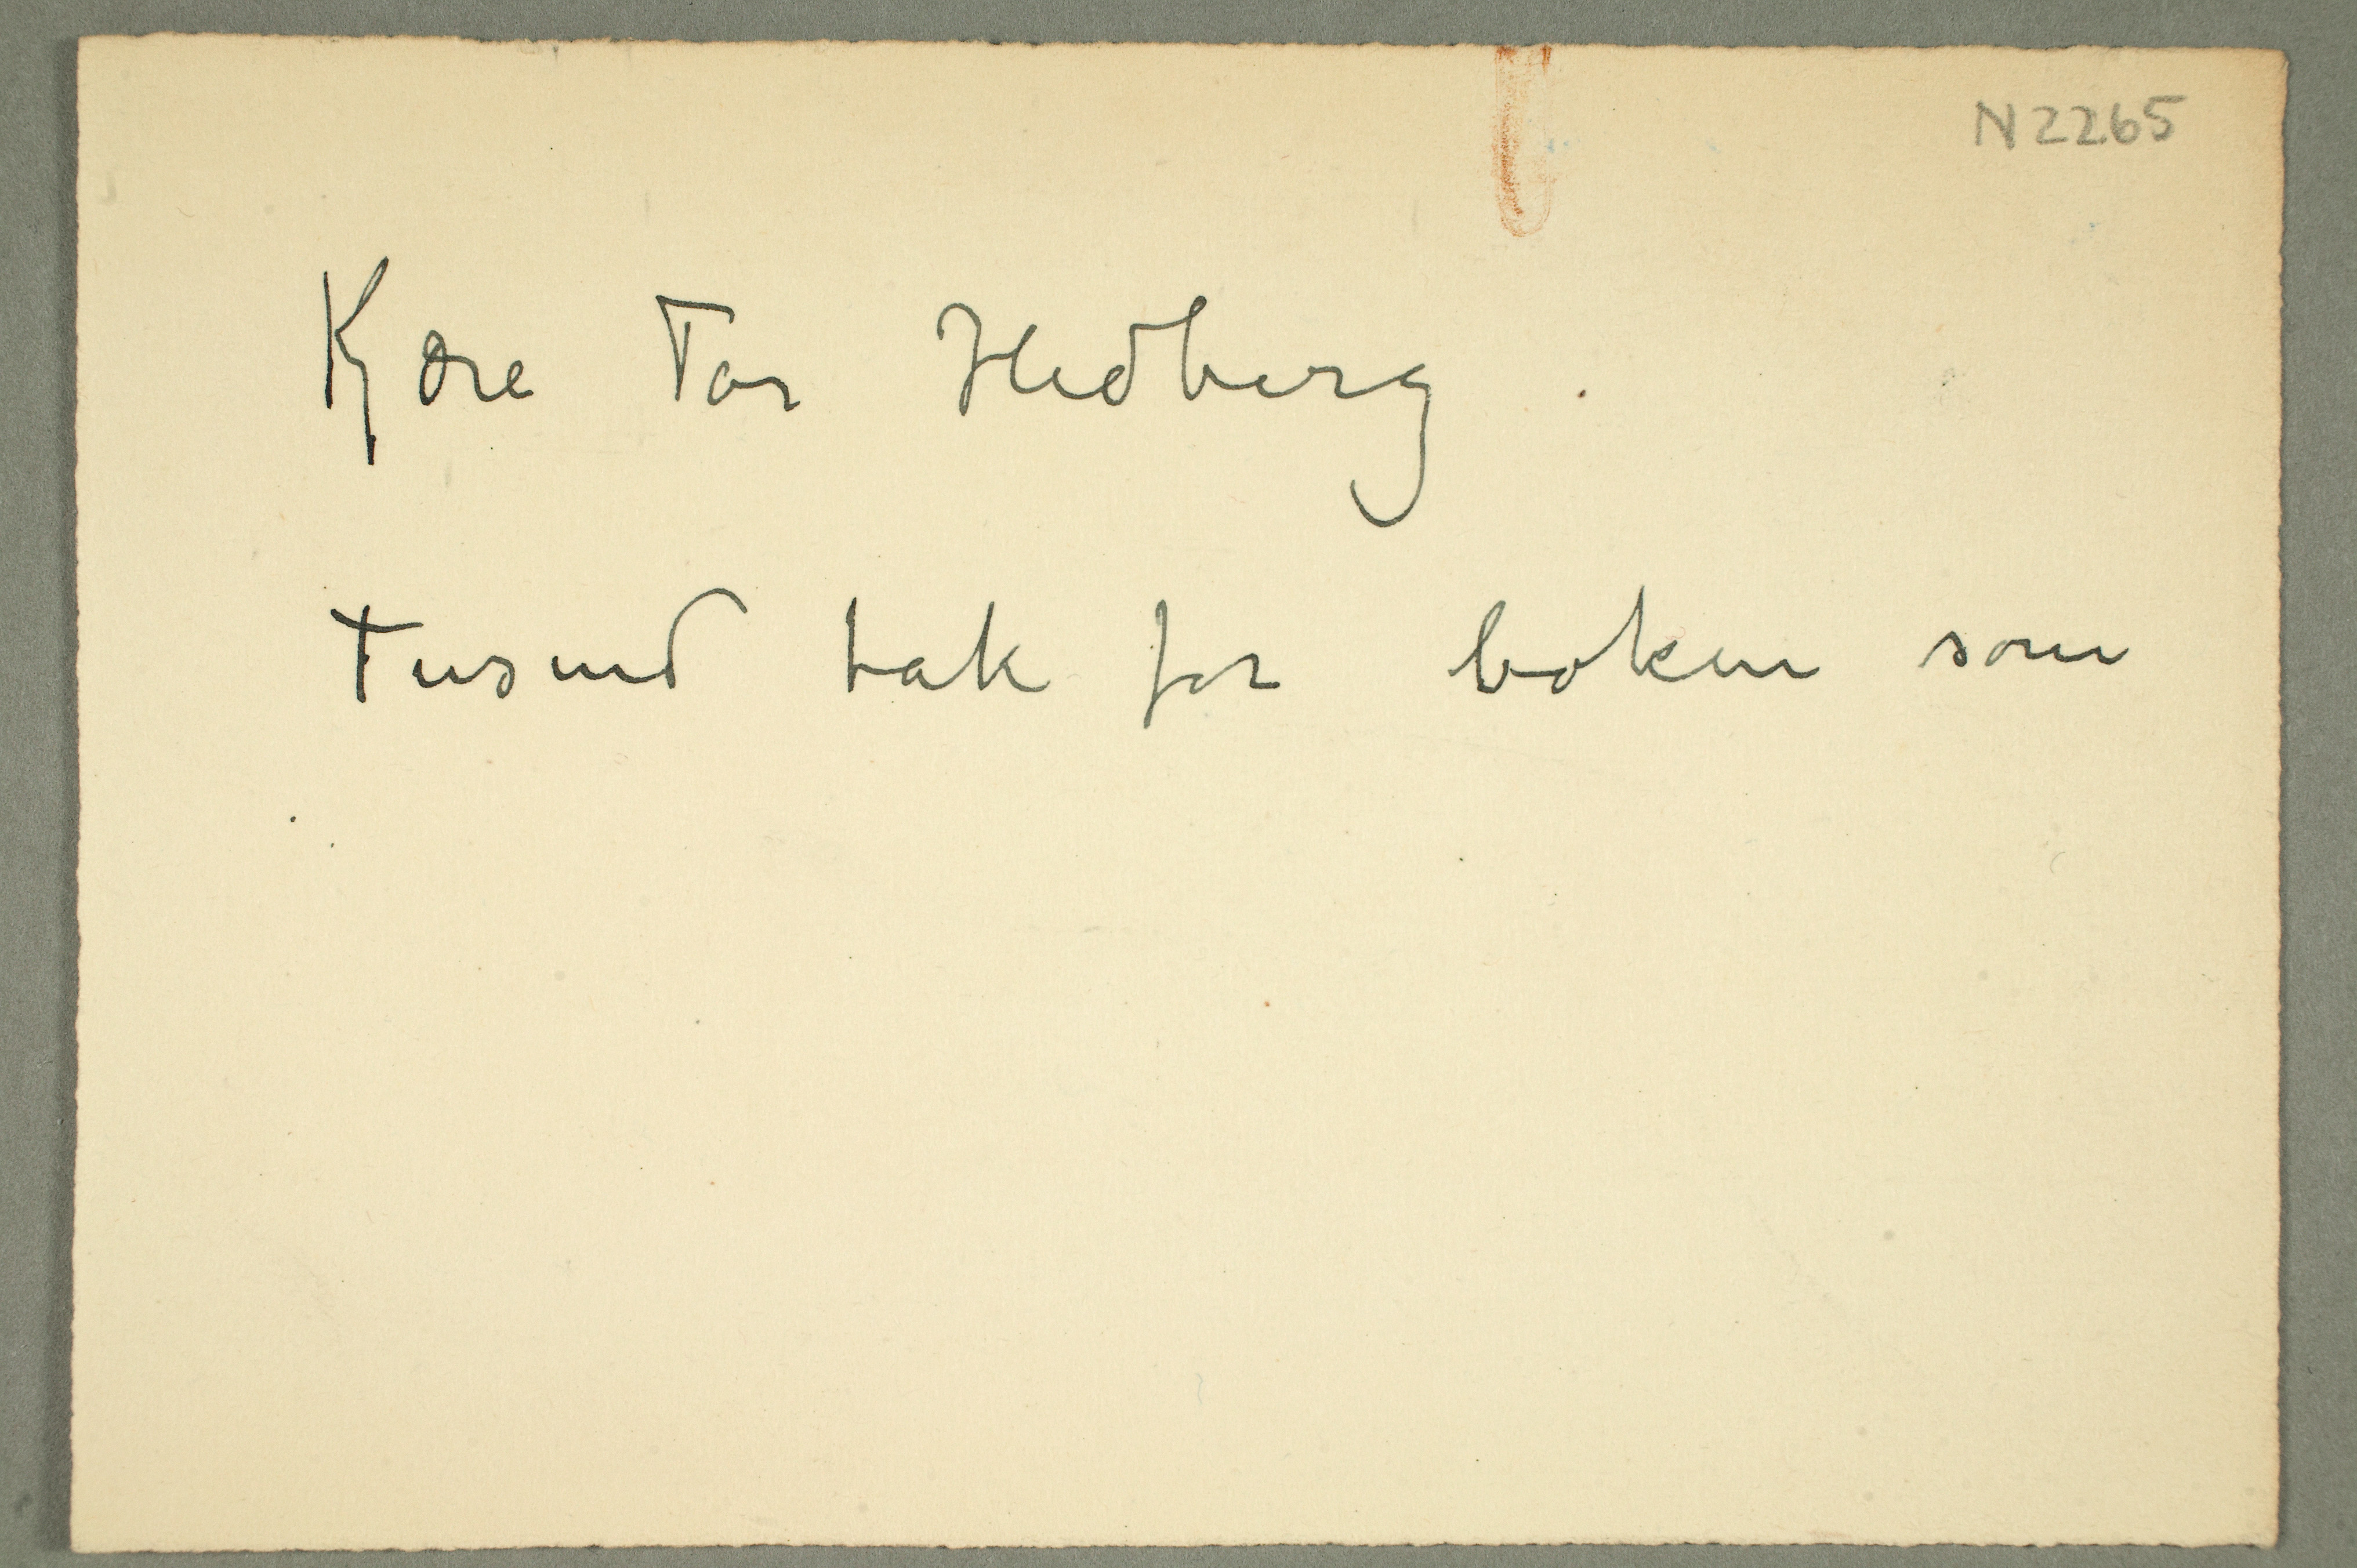 N 2265
Kjære Tor Hedberg.
Tusind tak for boken som